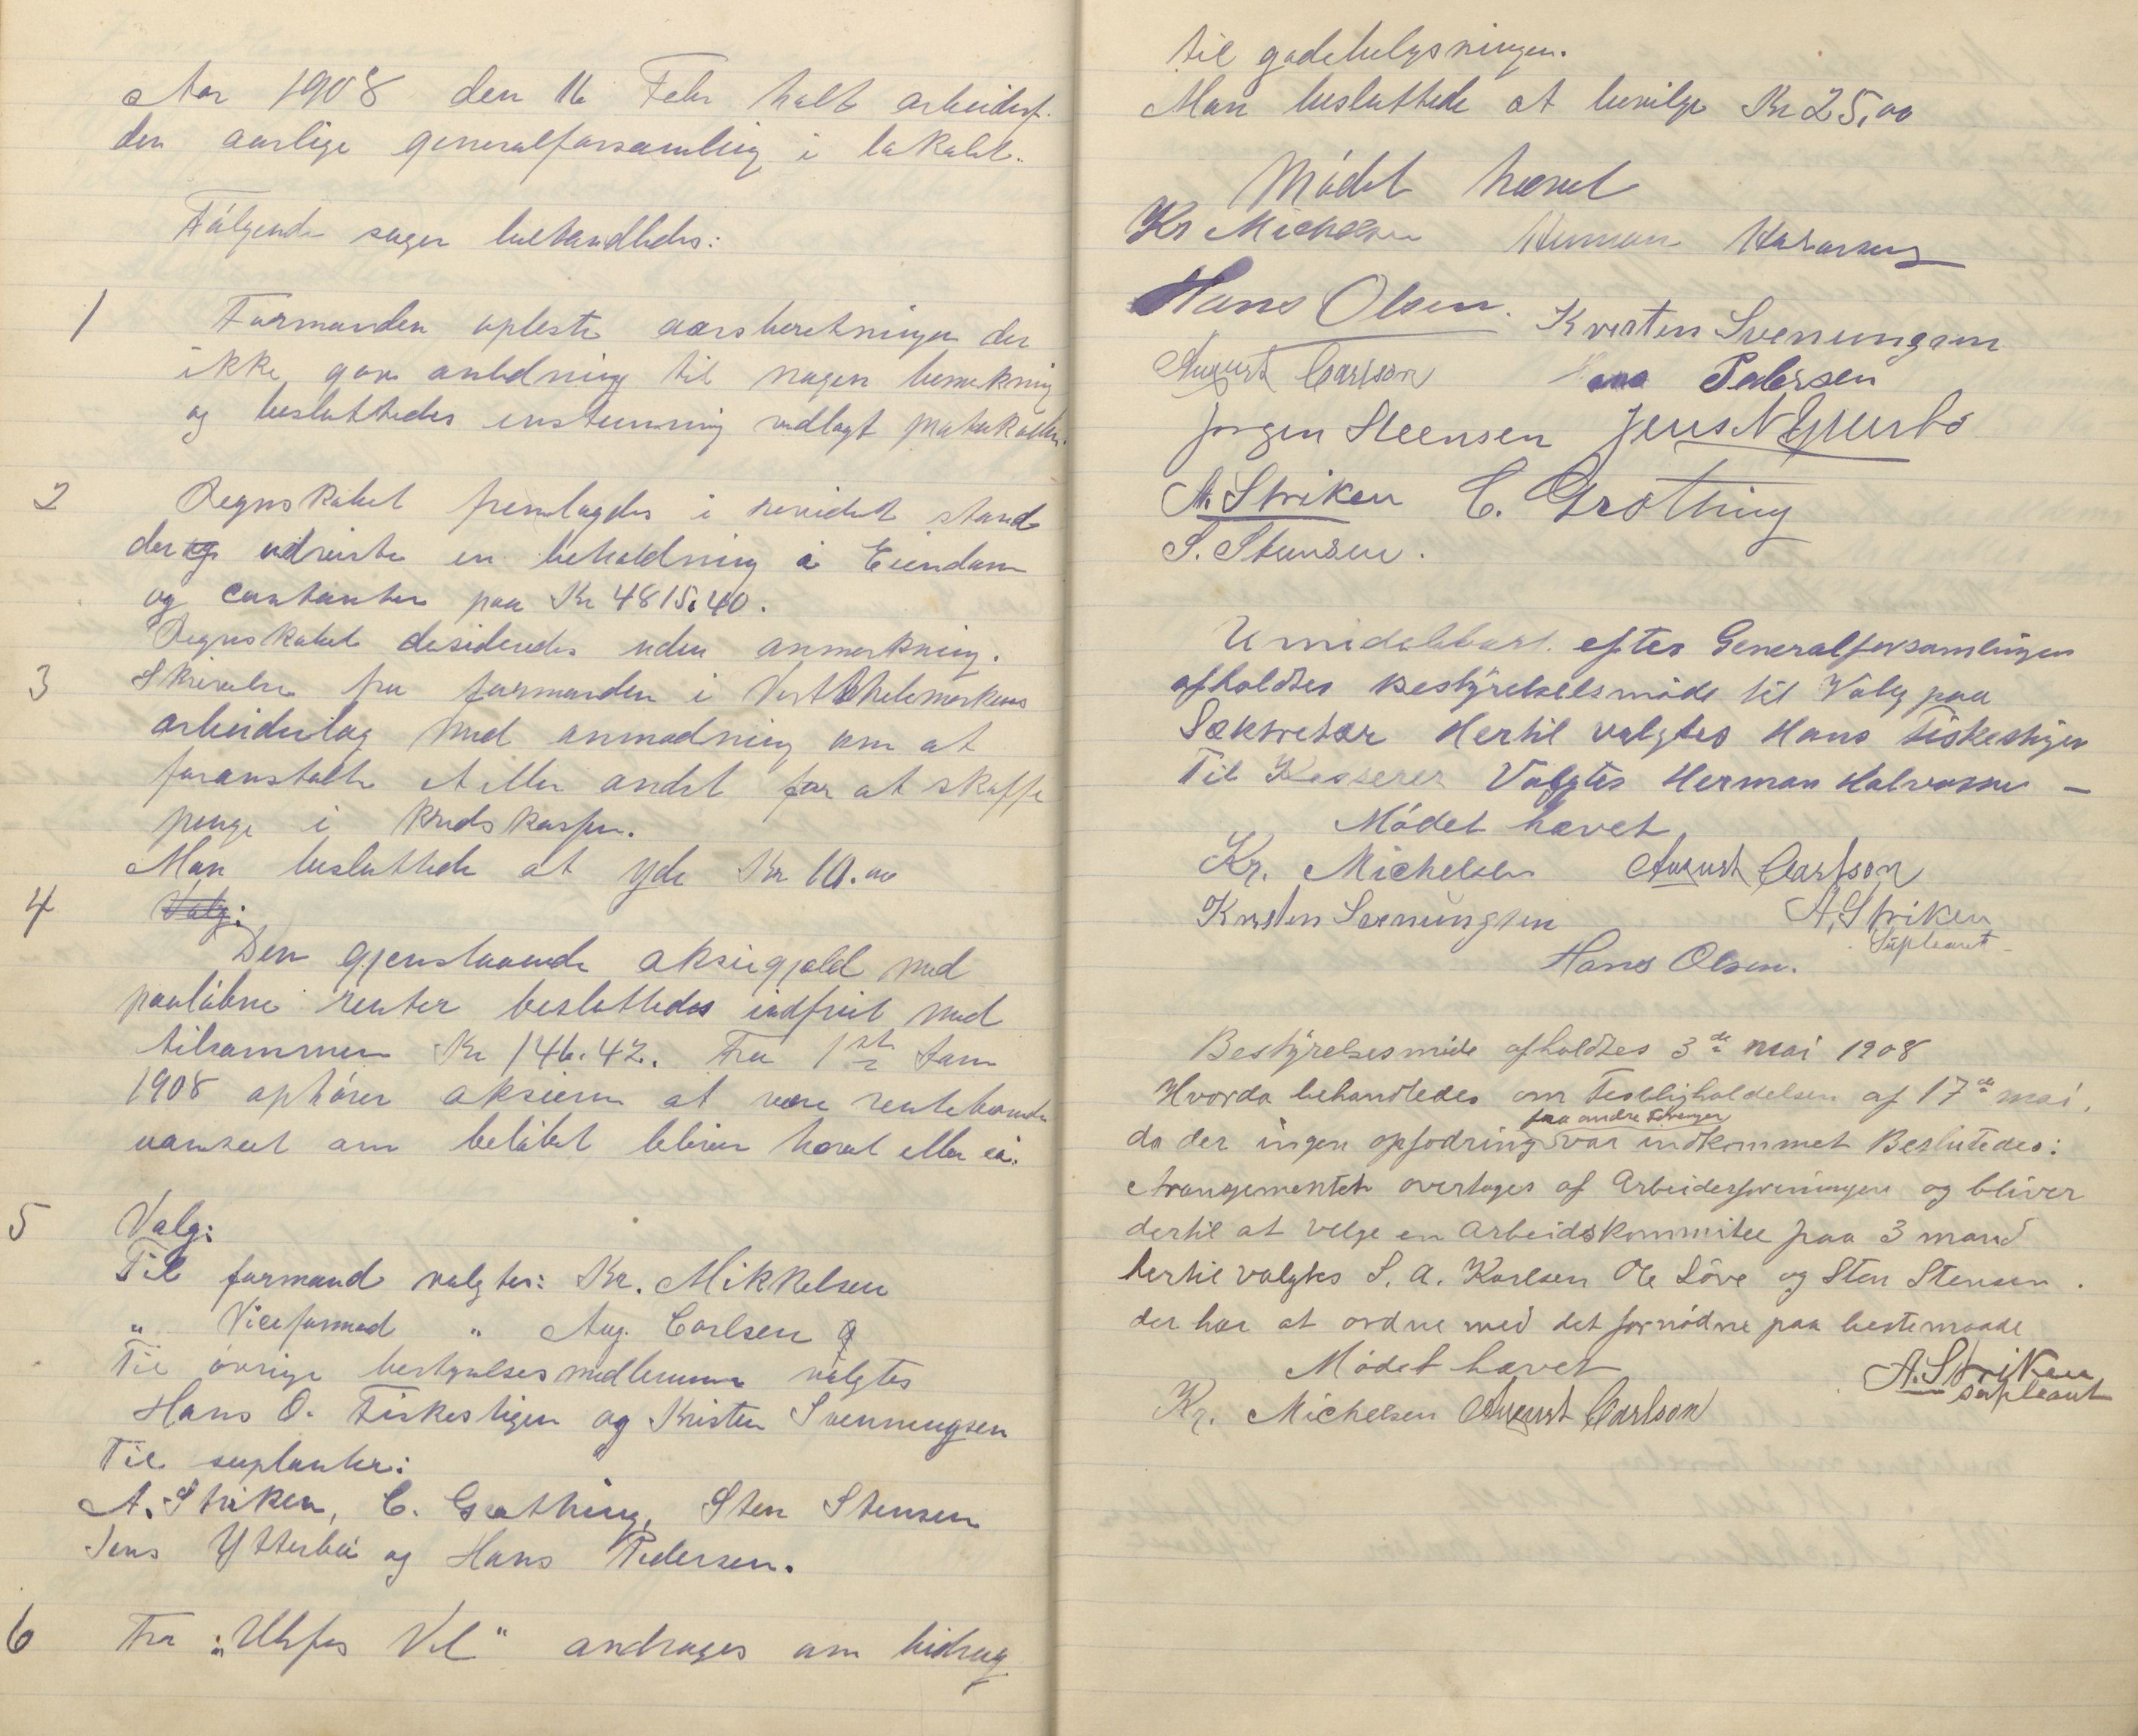 Aar 1908 den 16 Febr holt arbeiderf.
den aarlige generalforsamling i lokalet.
Følgende sager behandledes:
1 Formanden opleste aarsberetningen der
ikke gav anledning til nogen bemerkning
og besluttedes enstemmig vedlagt protokollen.
2 Regnskabet fremlagdes i revidert stand
der udviste en beholdning i Eiendom
og contanter paa Kr 4815.40.
Regnskabet desideredes uden anmerkning.
3 Skrivelse fra formanden i Vest Thelemarkens
arbeiderlag med anmodning om at
foranstalte et eller andet for at skaffe
penge i kredskassen.
Man besluttede at yde Kr 10.00
4 Valg:
Den gjenstaaende aksiegjæld med
paaløbne renter besluttedes indfriet med
tilsammen Kr 146.42. Fra 1ste Jan
1908 ophører aksierne at være rentebærende
uanseet om beløbet bliver hævet eller ei.
5 Valg:
Til formand valgtes: Kr. Mikkelsen
" Viceformad " Aug. Carlsen
Til øvrige bestyrelsesmedlemmer valgtes
Hans O. Fiskestigen og Kristen Svenningsen
Til suplanter:
A. Striken, C. Grothing, Sten Stensen
Jens Ytterbø og Hans Pedersen.
6 Fra "Ulefos Vel" androges om bidrag
til gadebelysningen.
Man besluttede at bevilge Kr 25,00
Mødet hævet
Kr Michelsen Herman Halvorsen
Hans Olsen. Kresten Svenungsen
August Carlson Hans Pedersen
Jørgen Steensen Jens N Ytterbø
A. Striken C. Grothing
S. Stensen.
Umidelbart efter Generalforsamlingen
afholdtes bestyrelselsmøde til Valg paa
Sækretær Hertil valgtes Hans Fiskestigen
Til Kasserer Valgtes Herman Halvorsen –
Mødet hævet
Kr. Michelsen August Carlson
Kresten Svenungsen A. Striken
Supleant
Hans Olsen.
Bestyrelsesmøde afholdtes 3de mai 1908
Hvorda behandledes om Festligholdelsen af 17de mai,
fra andre Foreger
da der ingen opfodring var indkommet Beslutedes:
Arangementet overtages af Arbeiderforeningen og bliver
dertil at velge en Arbeidskommitee paa 3 mand
hertil valgtes S. A. Karlsen Ole Løve og Sten Stensen.
der har at ordne med det fornødne paa bestemaade
Mødet hævet A. Striken
supleant
Kr. Michelsen August Carlson